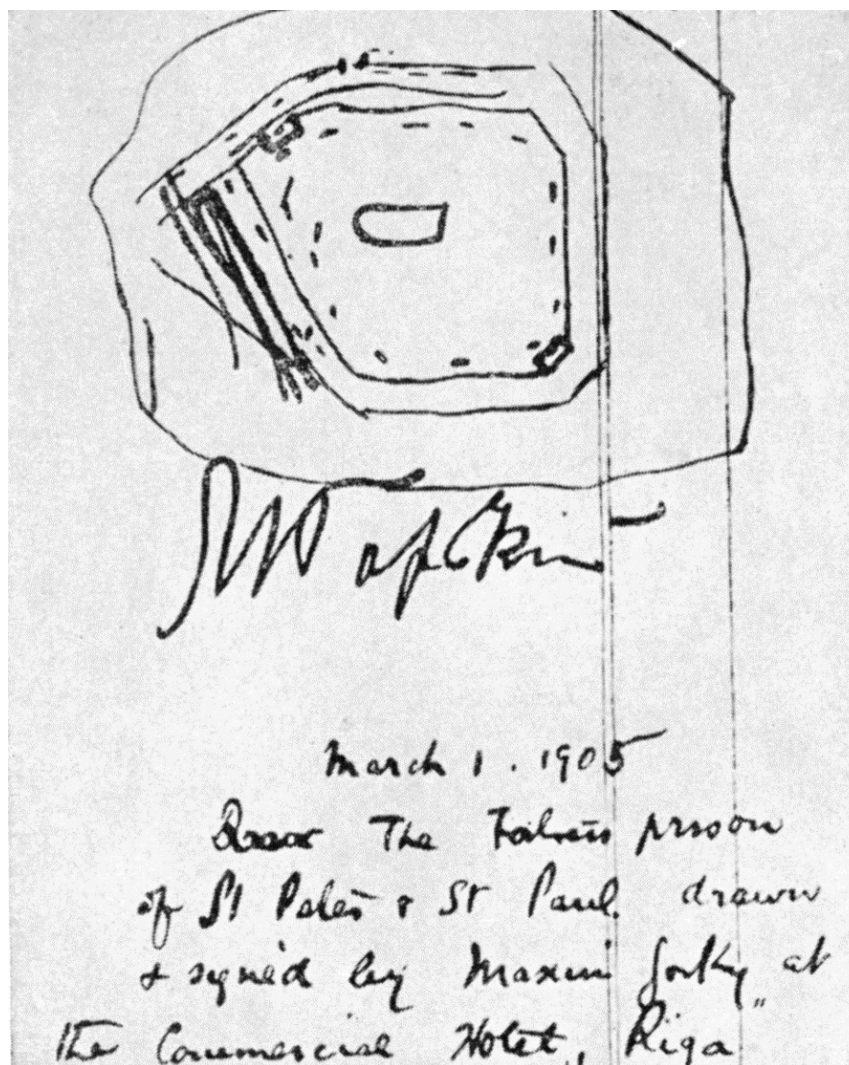 М Горький
March 1. 1905
The prison
of St Peter & St Paul. drawn
& signed by Maxim Gorky at
the "Commercial Hotel, Riga"